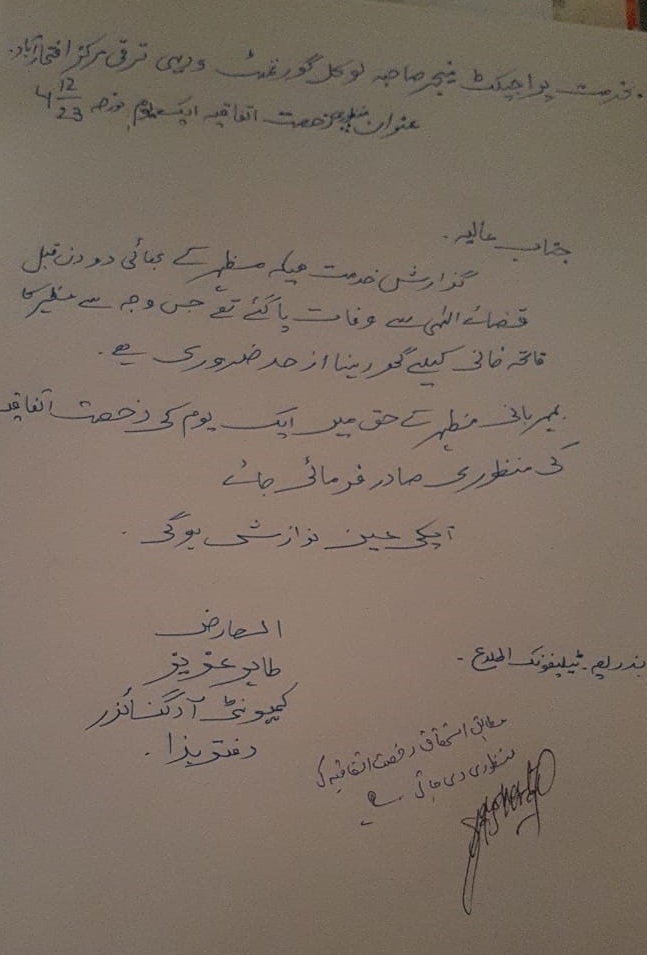 بخدمت پراجیکٹ منیجر صاحبہ لوکل گورنمنٹ و دیہی ترقی مرکز افتخار آباد۔
عنوان منظوری رخصت اتفاقیہ ایک یوم مورخہ 4 12/23
جناب عالیہ۔
گذارش خدمت ہیکہ مظہر کے بھائی دو دن قبل
قضائے الٰہی سے وفات پا گئے تھے جس وجہ سے مظہر کا
فاتحہ خانی کیلئے گھر رہنا از حد ضروری ہے۔
بمہربانی مظہر کے حق میں ایک یوم کی رخصت اتفاقیہ
کی منظوری صادر فرمائی جائے
آپکی عین نوازش ہوگی۔
العارض
طاہر عزیز
کمیونٹی آرگنائزر
دفتر ہذا۔
بذریعہ ٹیلیفونک اطلاع۔
مطابق استحقاق رخصت اتفاقیہ کی
منظوری دی جاتی ہے